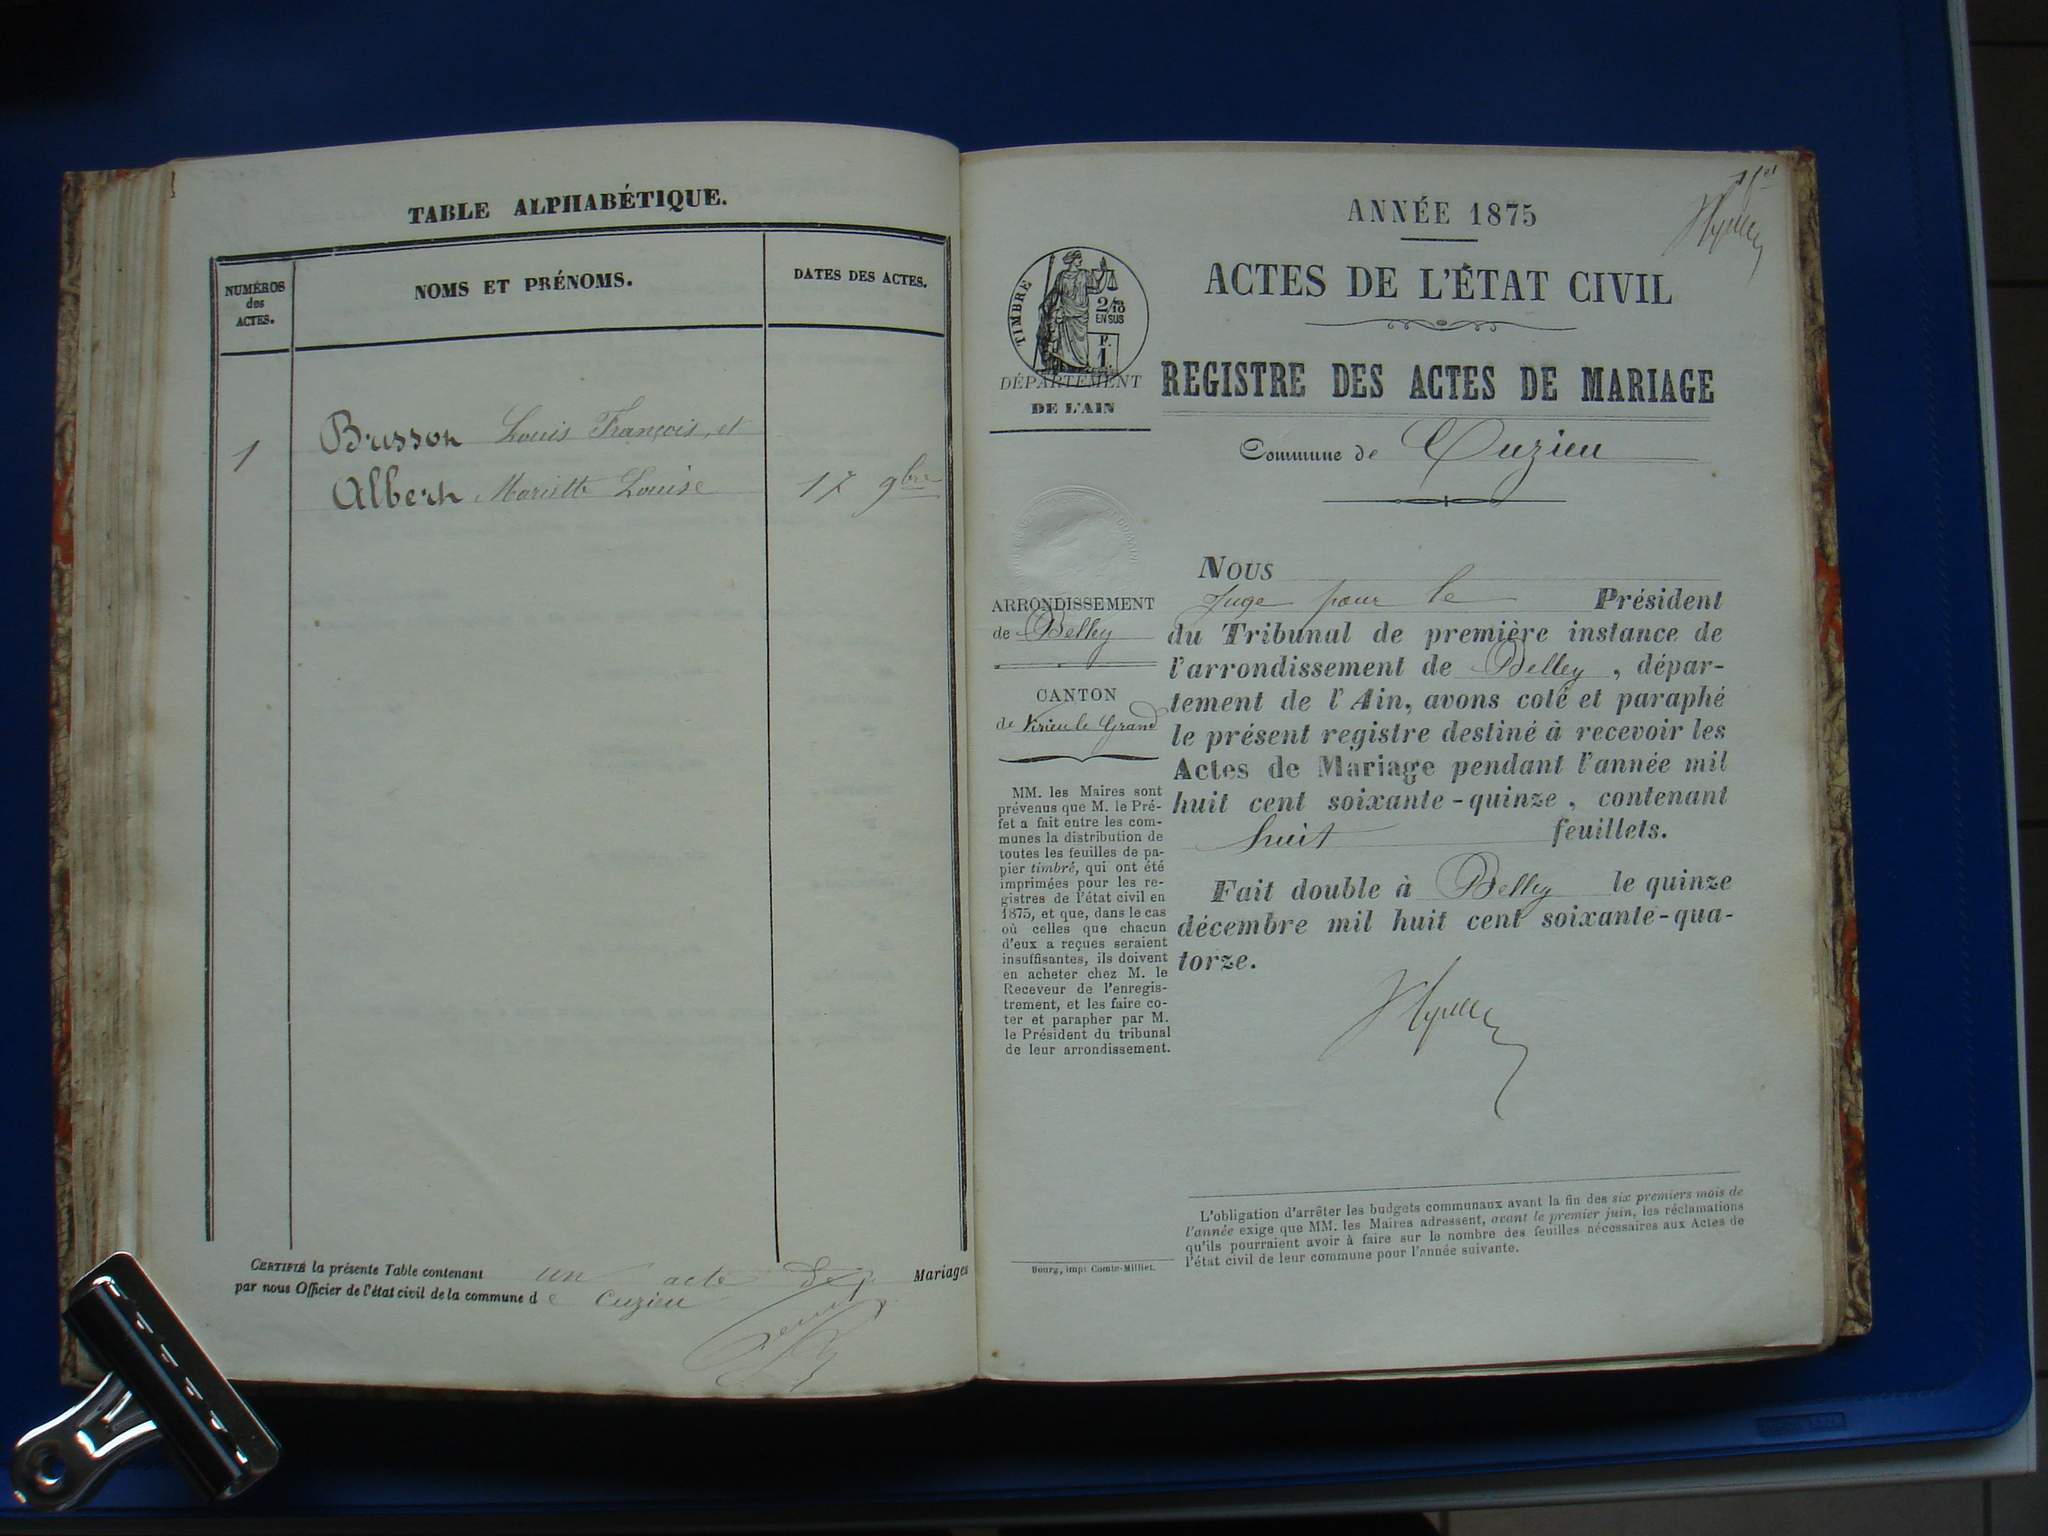 TABLE ALPHABÉTIQUE.
NUMÉROS
des
ACTES.
NOMS ET PRÉNOMS.
DATES DES ACTES.
1
Busson Louis François, et
Albert Mariette Louise
17 9bre
CERTIFIÉ la présente Table contenant un acte de Mariages
par nous Officier de l'état civil de la commune de Cuzieu
1er
ANNÉE 1875
ACTES DE L'ÉTAT CIVIL
REGISTRE DES ACTES DE MARIAGE
Commune de Cuzieu
TIMBRE
2/10
EN SUS
F.
1.
DÉPARTEMENT
DE L'AIN
ARRONDISSEMENT
de Belley
CANTON
de Virieu le Grand
MM. les Maires sont
prévenus que M. le Pré-
fet a fait entre les com-
munes la distribution de
toutes les feuilles de pa-
pier timbré, qui ont été
imprimées pour les re-
gistres de l'état civil en
1875, et que, dans le cas
où celles que chacun
d'eux a reçues seraient
insuffisantes, ils doivent
en acheter chez M. le
Receveur de l'enregis-
trement, et les faire co-
ter et parapher par M.
le Président du tribunal
de leur arrondissement.
NOUS
Juge pour le Président
du Tribunal de première instance de
l'arrondissement de Belley, dépar-
tement de l'Ain, avons coté et paraphé
le présent registre destiné à recevoir les
Actes de Mariage pendant l'année mil
huit cent soixante-quinze, contenant
huit feuillets.
Fait double à Belley le quinze
décembre mil huit cent soixante-qua-
torze.
L'obligation d'arrêter les budgets communaux avant la fin des six premiers mois de
l'année exige que MM. les Maires adressent, avant le premier juin, les réclamations
qu'ils pourraient avoir à faire sur le nombre des feuilles nécessaires aux Actes de
l'état civil de leur commune pour l'année suivante.
Bourg, imp. Comte-Milliet.